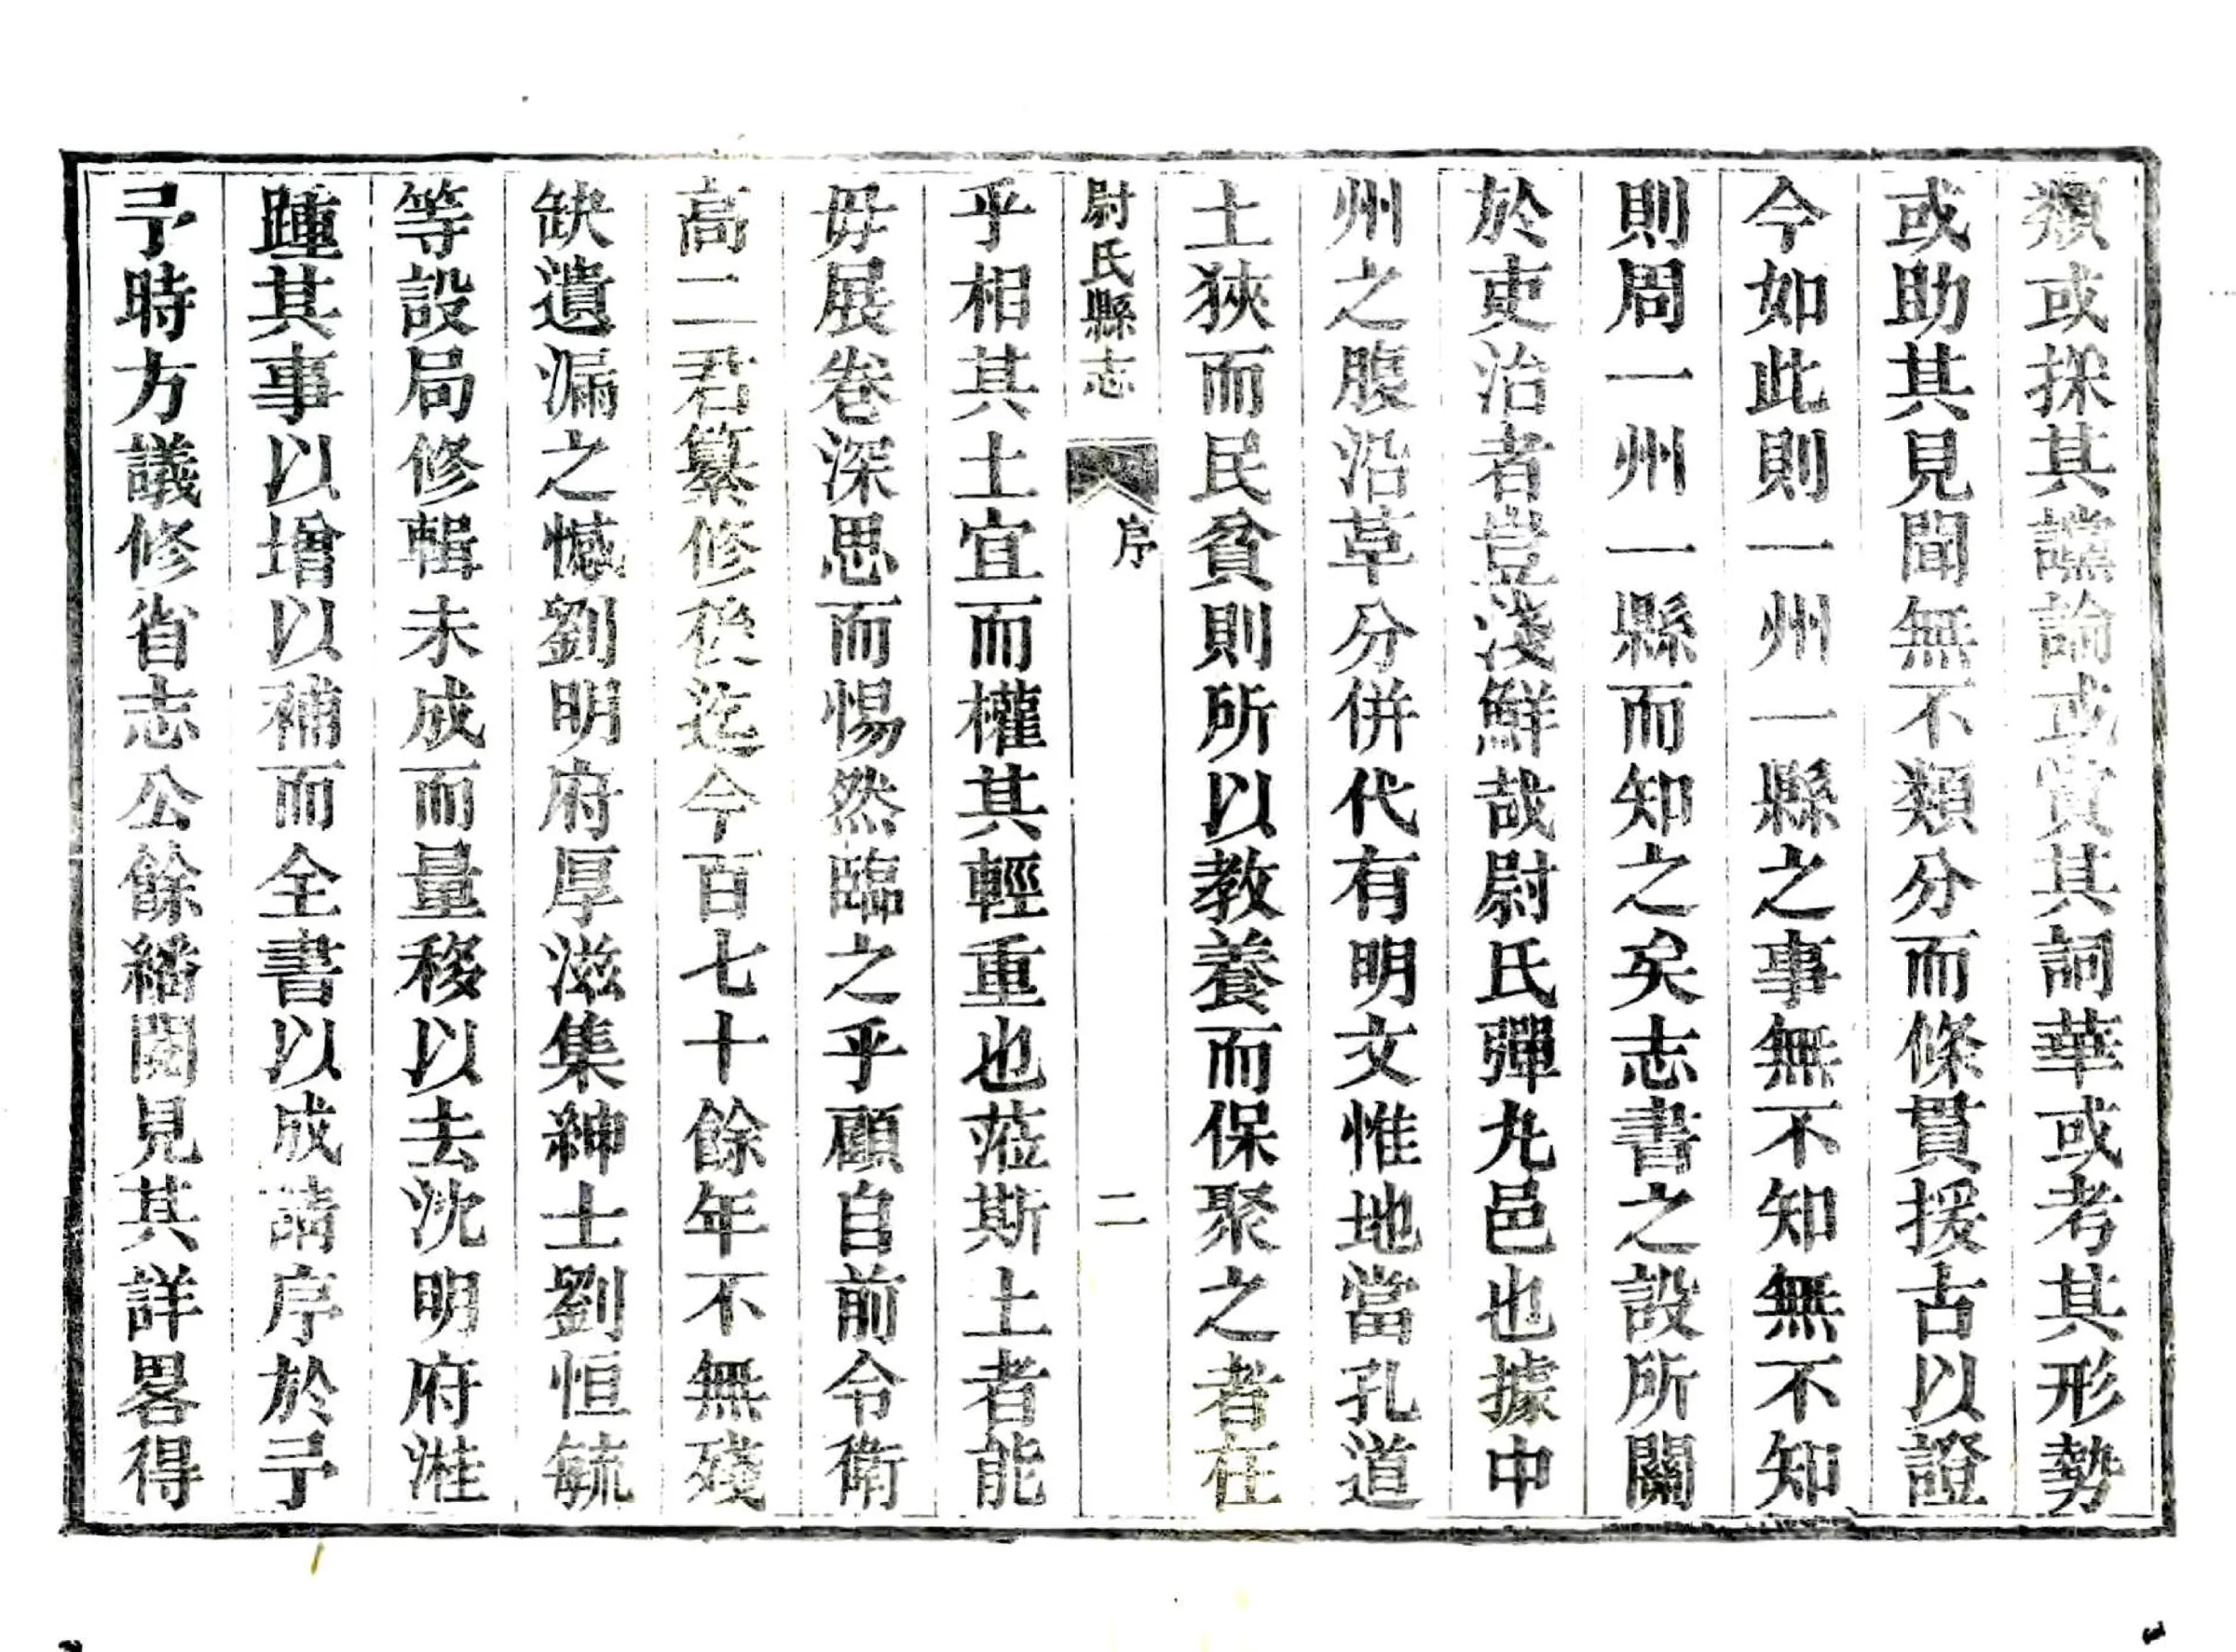 類或採其讜論或賞其詞華或考其形勢
或助其見聞無不類分而條貫援古以證
今如此則一州一縣之事無不知無不知
則周一州一縣而知之矣志書之設所關
於吏治者豈淺鮮哉尉氏彈丸邑也據中
州之腹沿草分併代有明文惟地當孔道
土狹而民貧則所以教養而保聚之者在
尉氏縣志 序 二
乎相其土宜而權其輕重也蒞斯土者能
毋展卷深思而惕然臨之乎顧自前令衛
高二君纂修後迄今百七十餘年不無殘
缺遺漏之憾劉明府厚滋集紳士劉恒毓
等設局修輯未成而量移以去沈明府溎
踵其事以增以補而全書以成請序於予
予時方議修省志公餘繙閱見其詳畧得